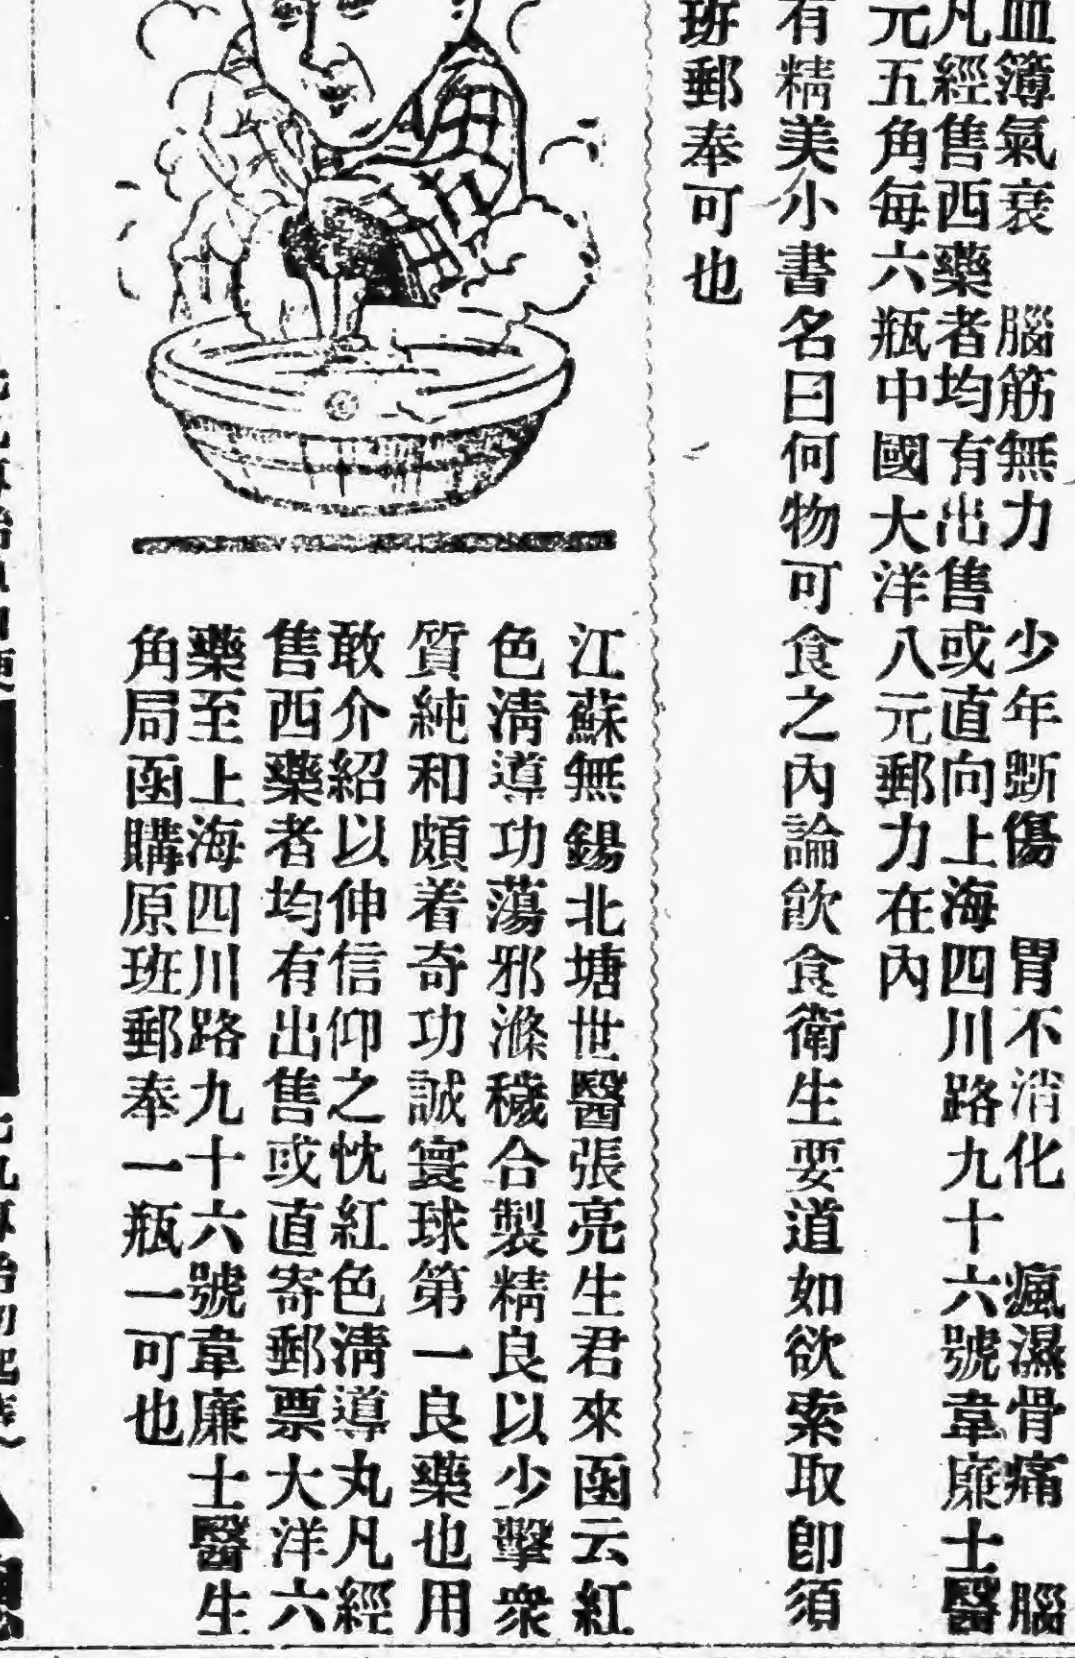 血簿氣衰　腦筋無力　少年斲傷　胃不消化　瘋濕骨痛　腦
凡經售西藥者均有出售或直向上海四川路九十六號韋廉士醫
元五角每六瓶中國大洋八元郵力在內
有精美小書名曰何物可食之內論飲食衛生要道如欲索取卽須
班郵奉可也
江蘇無錫北塘世醫張亮生君來函云紅
色淸導功蕩邪滌穢合製精良以少擊衆
質純和頗着奇功誠寰球第一良藥也用
敢介紹以伸信仰之忱紅色淸導丸凡經
售西藥者均有出售或直寄郵票大洋六
藥至上海四川路九十六號韋廉士醫生
角局函購原班郵奉一瓶一可也